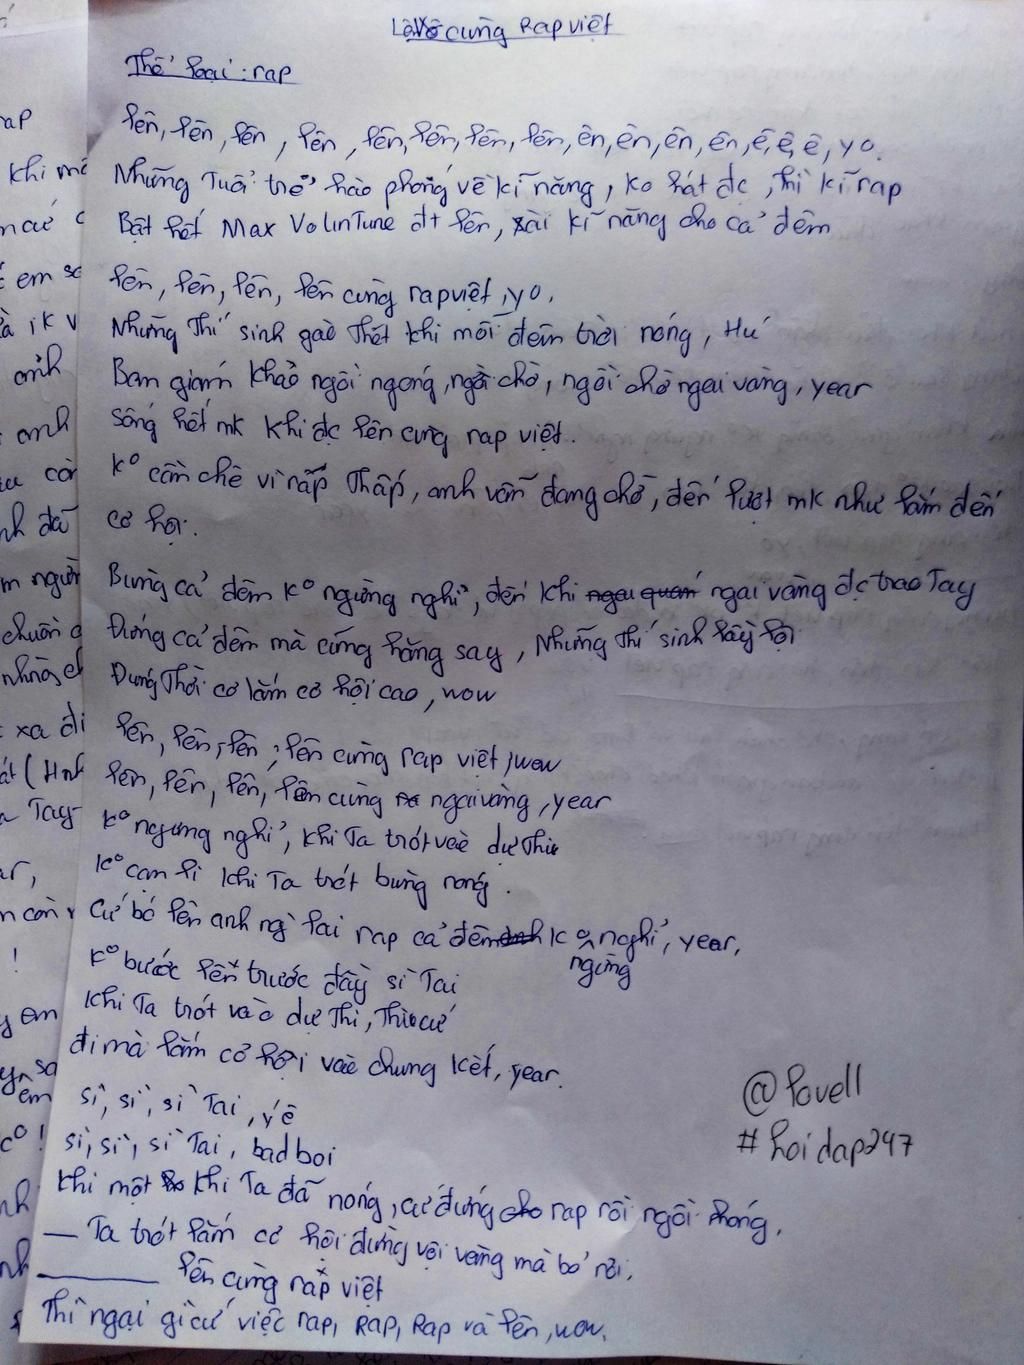 cùng Rap việt
Thể loại: rap
lên, lên, lên, lên, lên, lên, lên, lên, ên, ên, ên, ên, ê, ê, ê, yo.
Những Tuổi trẻ hào phóng về kĩ năng, ko hát đc, thì kĩ rap
Bật hết Max VolinTune đt lên, xài kĩ năng cho cả đêm
lên, lên, lên, lên cùng rap việt, yo,
Những Thí sinh gào Thét khi mỗi đêm trời nóng, Hú
Ban giám khảo ngồi ngóng, ngồi chờ, ngồi chờ ngai vàng, year
Sống hết mk khi đc lên cùng rap việt.
Ko cần chê vì nấp Thấp, anh vẫn đang chờ, đến lượt mk như lắm đến
cơ hội.
Bùng cả đêm ko ngừng nghỉ, đến khi ngai vàng đc trao Tay
Đứng cả đêm mà cứng hăng say, Những Thí sinh lấy lợi
Đúng Thời cơ lắm cơ hội cao, wow
lên, lên, lên, lên cùng rap việt, wow
lên, lên, lên, lên cùng ngai vàng, year
Ko ngưng nghỉ, khi Ta trót vào dự Thi
Ko cạn lì khi Ta trót bùng nóng.
Cứ bỏ lên anh ng lai rap cả đêm ko ngừng nghỉ, year,
Ko bước lên trước đầy sì Tai
Khi Ta trót vào dự Thi, Thì cứ
đi mà lắm cơ hội vào chung kết, year.
sì, sì, sì Tai, yê
sì, sì, sì Tai, bad boi
Khi một khi Ta đã nóng, cứ đứng rap rồi ngồi phóng,
— Ta trót lắm cơ hội đừng vội vàng mà bỏ rơi,
lên cùng rap việt
Thì ngại gì cứ việc rap, RAP, Rap và lên, wow,
@lovell
#hoidap247